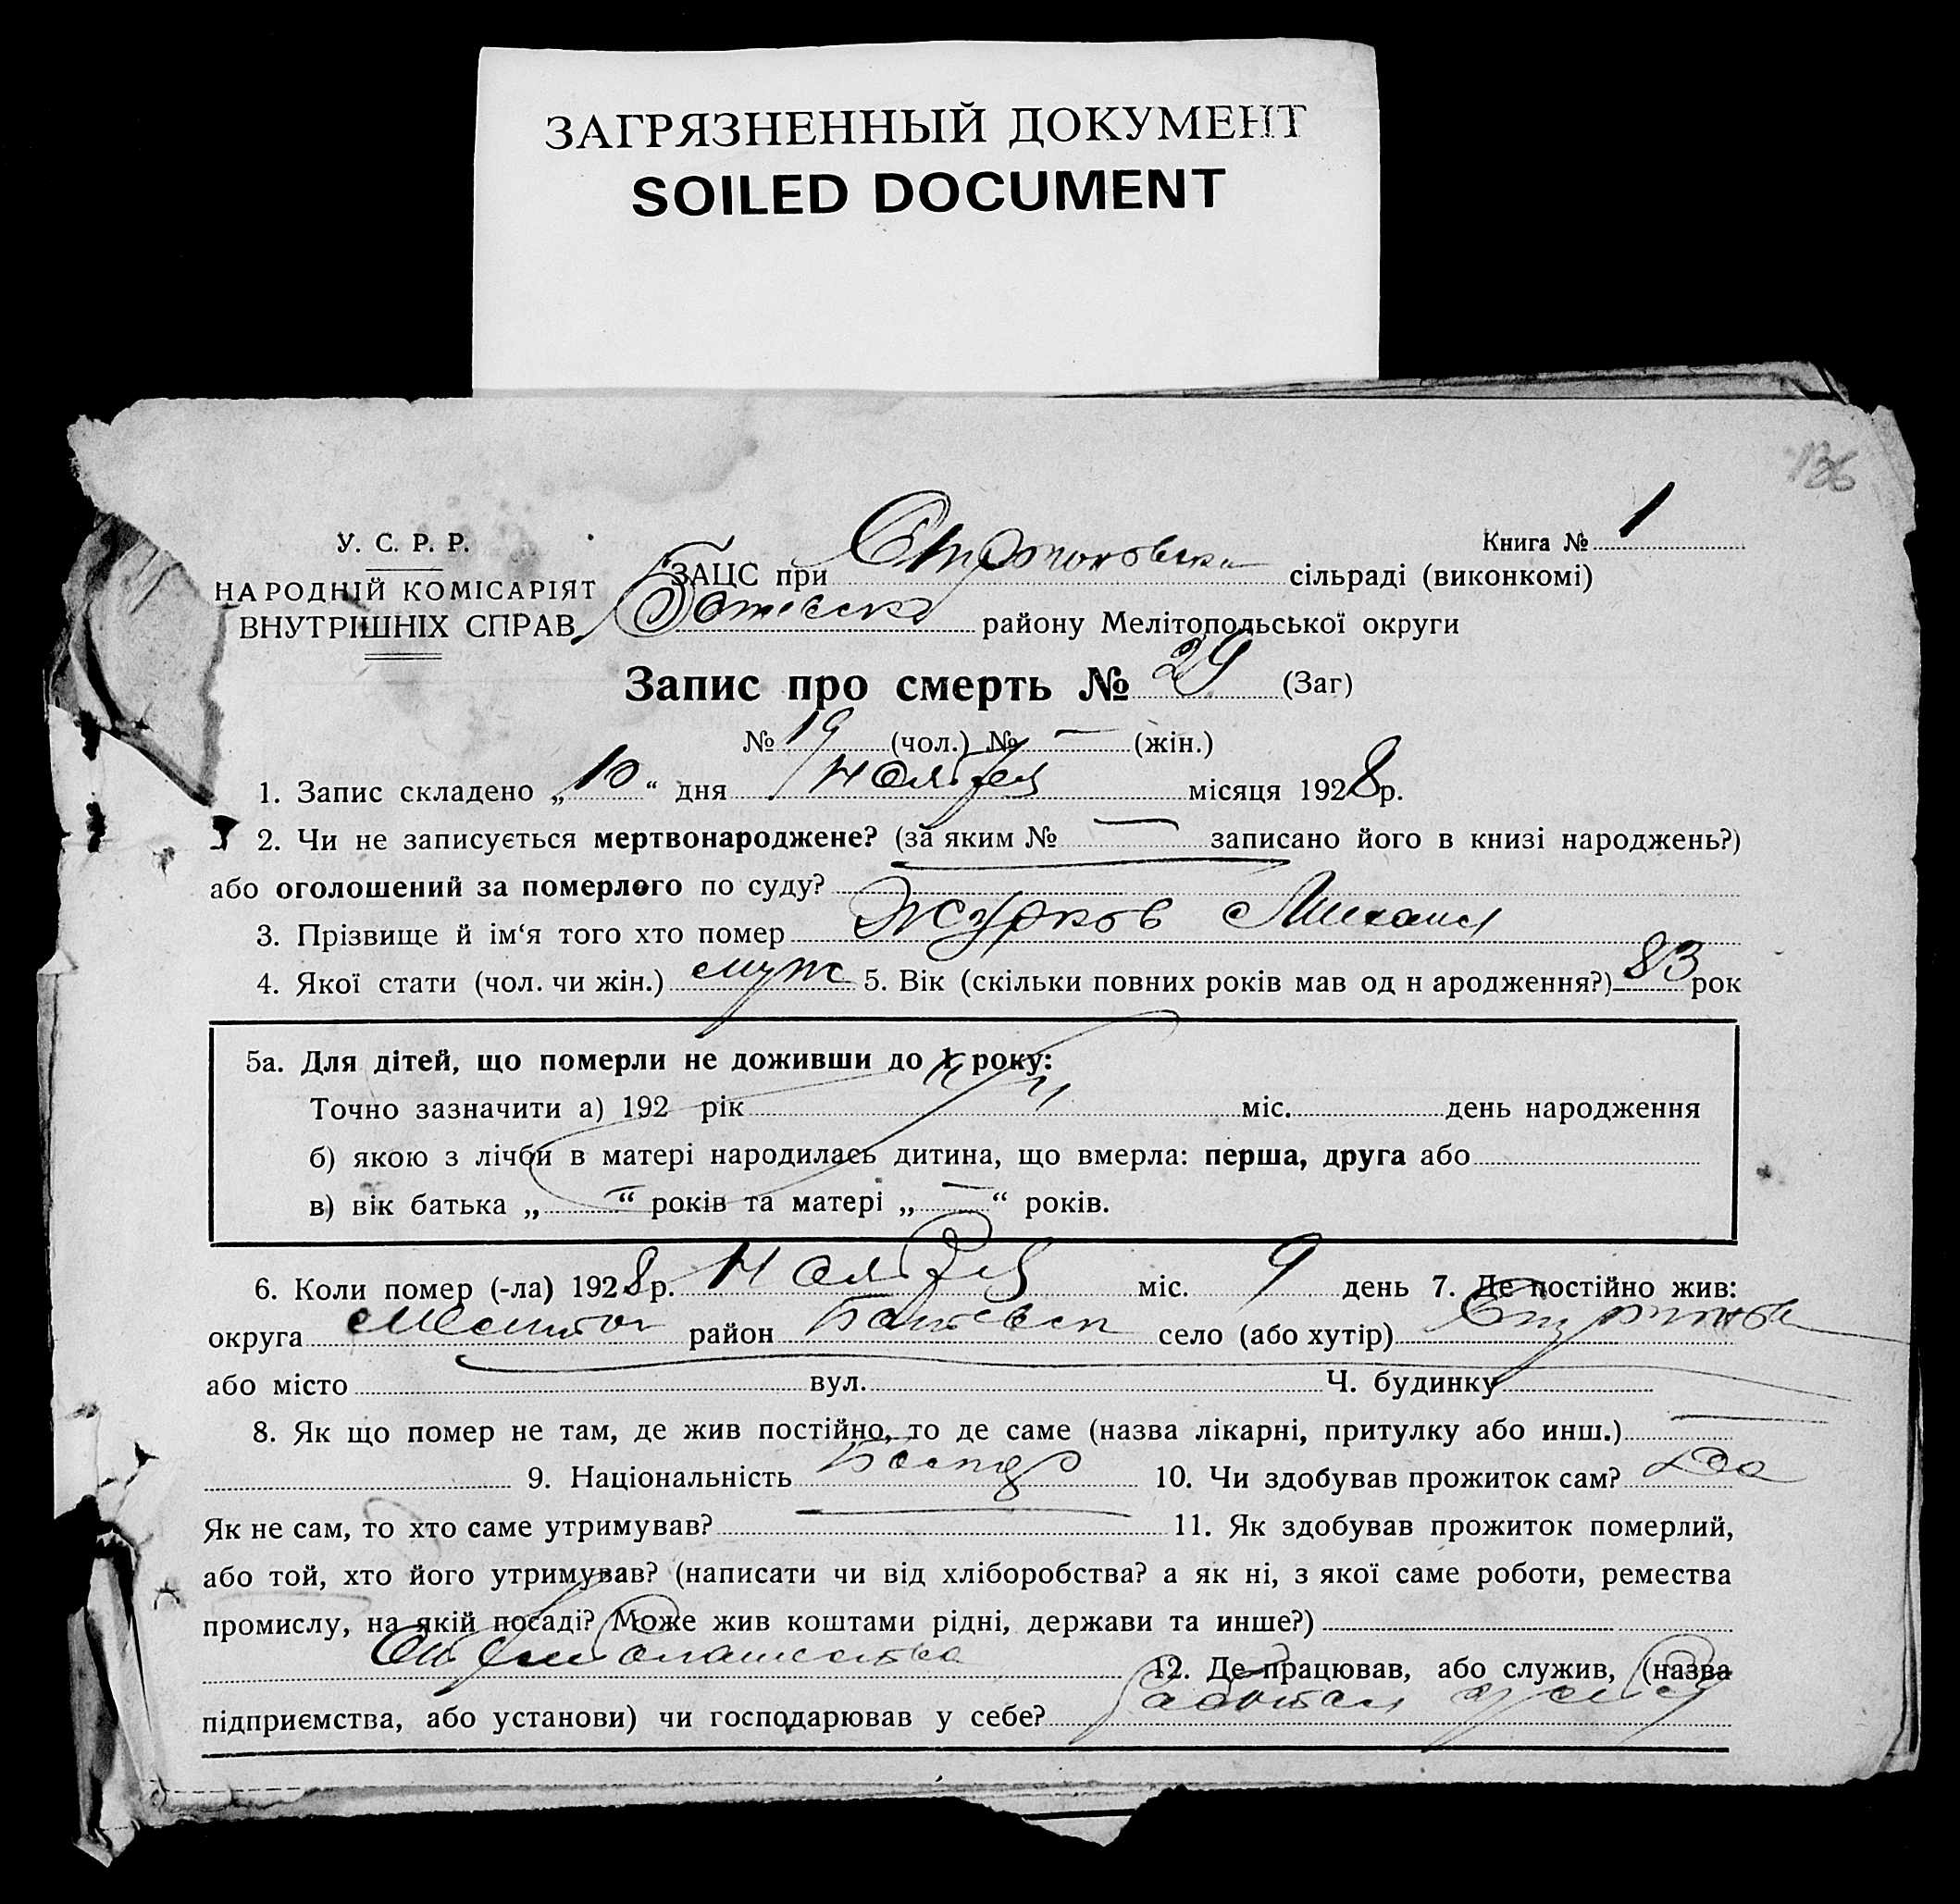 ЗАГРЯЗНЕННЫЙ ДОКУМЕНТ
SOILED DOCUMENT
136
У. С. Р. Р.
НАРОДНІЙ КОМІСАРІЯТ
ВНУТРІШНІХ СПРАВ
Книга № 1
ЗАЦС при сільраді (виконкомі)
району Мелітопольської округи
Запис про смерть № 29 (Заг)
№ 19 (чол.) № — (жін.)
1. Запис складено „10“ дня Ноября місяця 1928 р.
2. Чи не записується мертвонароджене? (за яким № — записано його в книзі народжень?)
або оголошений за померлого по суду?
3. Прізвище й ім‘я того хто помер Журков Михаил
4. Якої стати (чол. чи жін.) муж 5. Вік (скільки повних років мав од н ародження?) 83 рок
5а. Для дітей, що померли не доживши до 1 року:
Точно зазначити а) 192 рік міс. день народження
б) якою з лічби в матері народилась дитина, що вмерла: перша, друга або
в) вік батька „ — “ років та матері „ — “ років.
6. Коли помер (-ла) 1928 р. Ноября міс. 9 день 7. Де постійно жив:
округа Мелитоп район село (або хутір)
або місто вул. Ч. будинку
8. Як що помер не там, де жив постійно, то де саме (назва лікарні, притулку або инш.) —
9. Національність 10. Чи здобував прожиток сам? Да
Як не сам, то хто саме утримував? 11. Як здобував прожиток померлий,
або той, хто його утримував? (написати чи від хліборобства? а як ні, з якої саме роботи, ремества
промислу, на якій посаді? Може жив коштами рідні, держави та инше?)
12. Де працював, або служив, (назва
підприємства, або установи) чи господарював у себе?